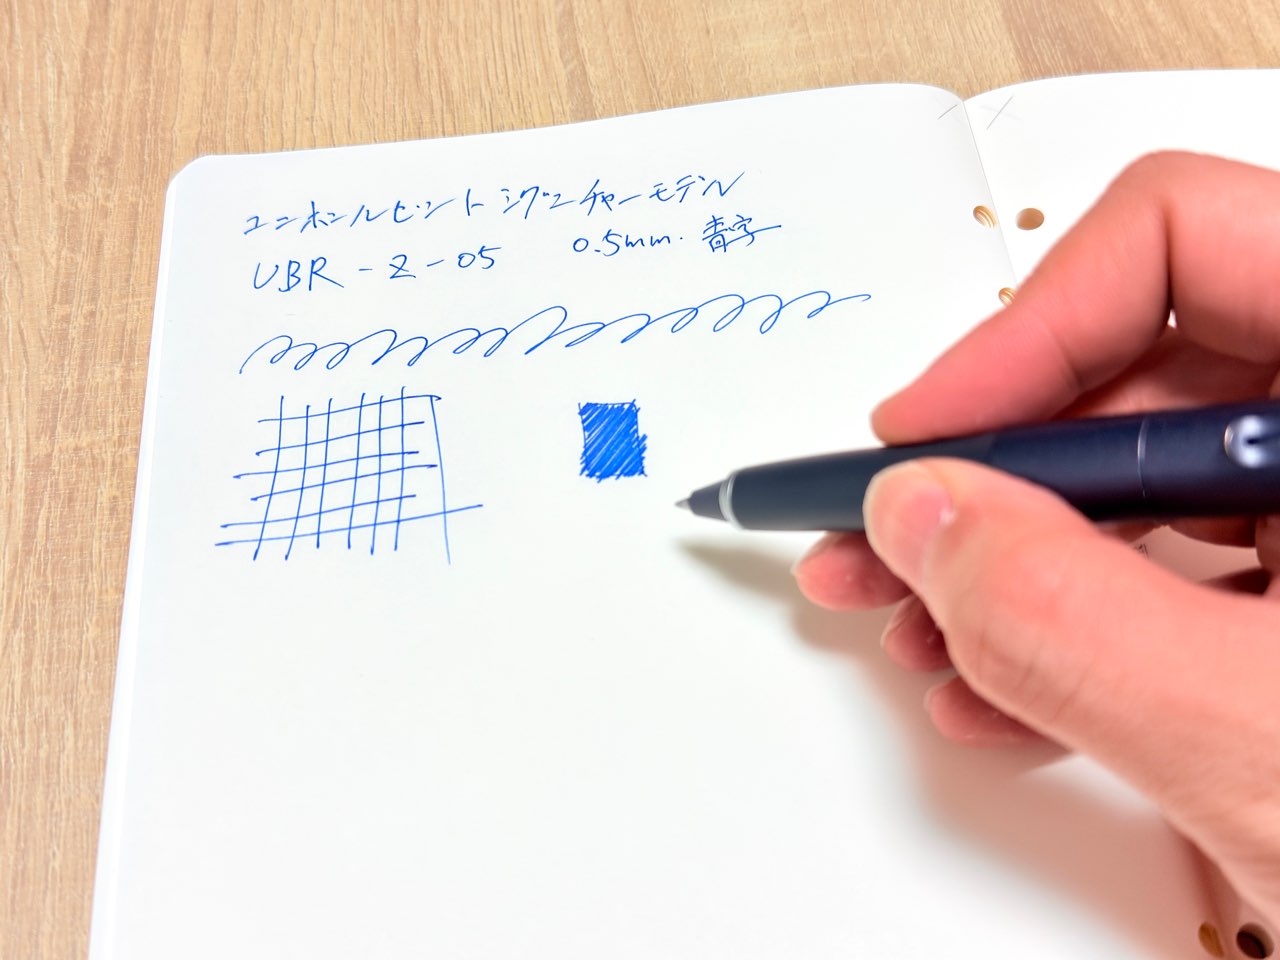 ユニボールゼント シグニチャーモデル
UBR-Z-05 0.5mm. 青字